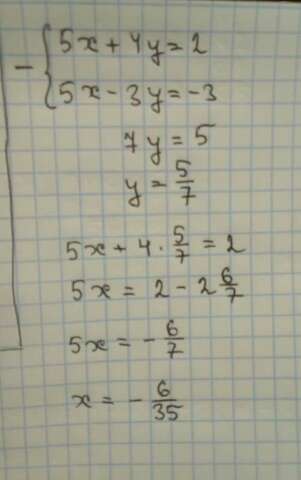 5x + 4y = 2
- {
5x - 3y = -3
7y = 5
y = 5/7
5x + 4 · 5/7 = 2
5x = 2 - 2 6/7
5x = - 6/7
x = - 6/35